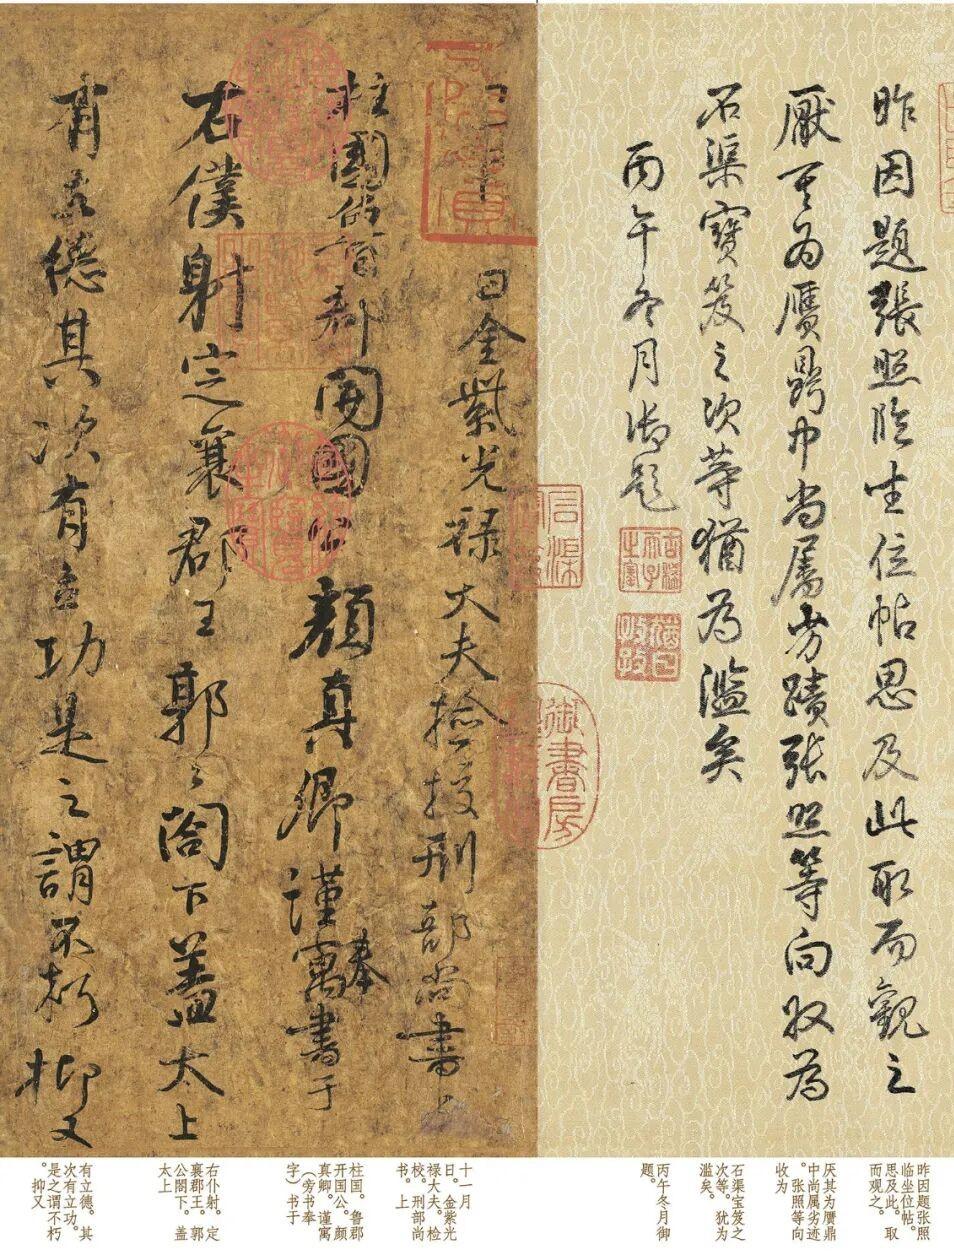 昨因題張照臨坐位帖思及此取而觀之
厭其為贋鼎中尚屬劣蹟張照等向收為
石渠寶笈之次等猶為濫矣
丙午冬月御題
古稀天子之寶
猶日孜孜
石渠寶笈
御書房
日金紫光祿大夫檢校刑部尚書上
柱國魯郡開國公顏真卿謹寓奉書于
右僕射定襄郡王郭公閤下蓋太上
有立德其次有立功是之謂不朽抑又
昨因题张照
临坐位帖。
思及此。取
而观之。
厌其为贋鼎
中尚属劣迹
。张照等向
收为
石渠宝笈之
次等。犹为
滥矣。
丙午冬月御
题。
十一月
日。金紫光
禄大夫。检
校。刑部尚
书。上
柱国。鲁郡
开国公。颜
真卿。谨寓
（旁书奉
字）书于
右仆射。定
襄郡王。郭
公閤下。盖
太上
有立德。其
次有立功。
是之谓不朽
。抑又